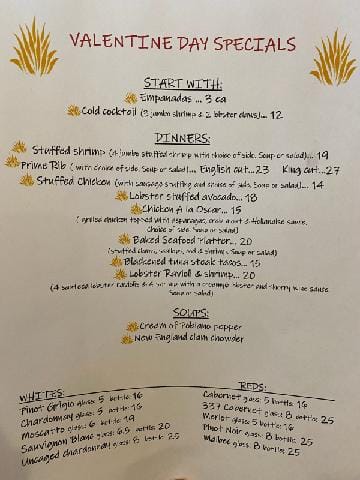 VALENTINE DAY SPECIALS
START WITH:
Empanadas... 3 ea
Cold cocktail (2 jumbo shrimp & 2 lobster claws)... 12
DINNERS:
Stuffed shrimp (4 jumbo stuffed shrimp with choice of side, Soup or salad)... 19
Prime Rib (with choice of side, Soup or salad)... English cut...23 King cut...27
Stuffed Chicken (with sausage stuffing and choice of side, Soup or salad)... 14
Lobster stuffed avocado... 18
Chicken A la Oscar... 15
(grilled chicken topped with asparagus, crab meat & Hollandaise sauce,
Choice of side, Soup or salad)
Baked Seafood Platter... 20
(stuffed clams, scallops, and shrimp, Soup or salad)
Blackened tuna steak tacos... 15
Lobster Ravioli & shrimp... 20
(4 lobster raviolis & shrimp with a creamy lobster and sherry wine sauce,
Soup or Salad)
SOUPS:
Cream of Poblano pepper
New England clam chowder
WHITES:
Pinot Grigio glass: 5 bottle: 16
Chardonnay glass: 5 bottle: 16
Moscatto glass: 6 bottle: 19
Sauvignon Blanc glass: 6.5 bottle: 20
Uncaged chardonnay glass: 8 bottle: 25
REDS:
Cabernet glass: 5 bottle: 16
337 Cabernet glass: 8 bottle: 25
Merlot glass: 5 bottle: 16
Pinot Noir glass: 8 bottle: 25
Malbec glass: 8 bottle: 25